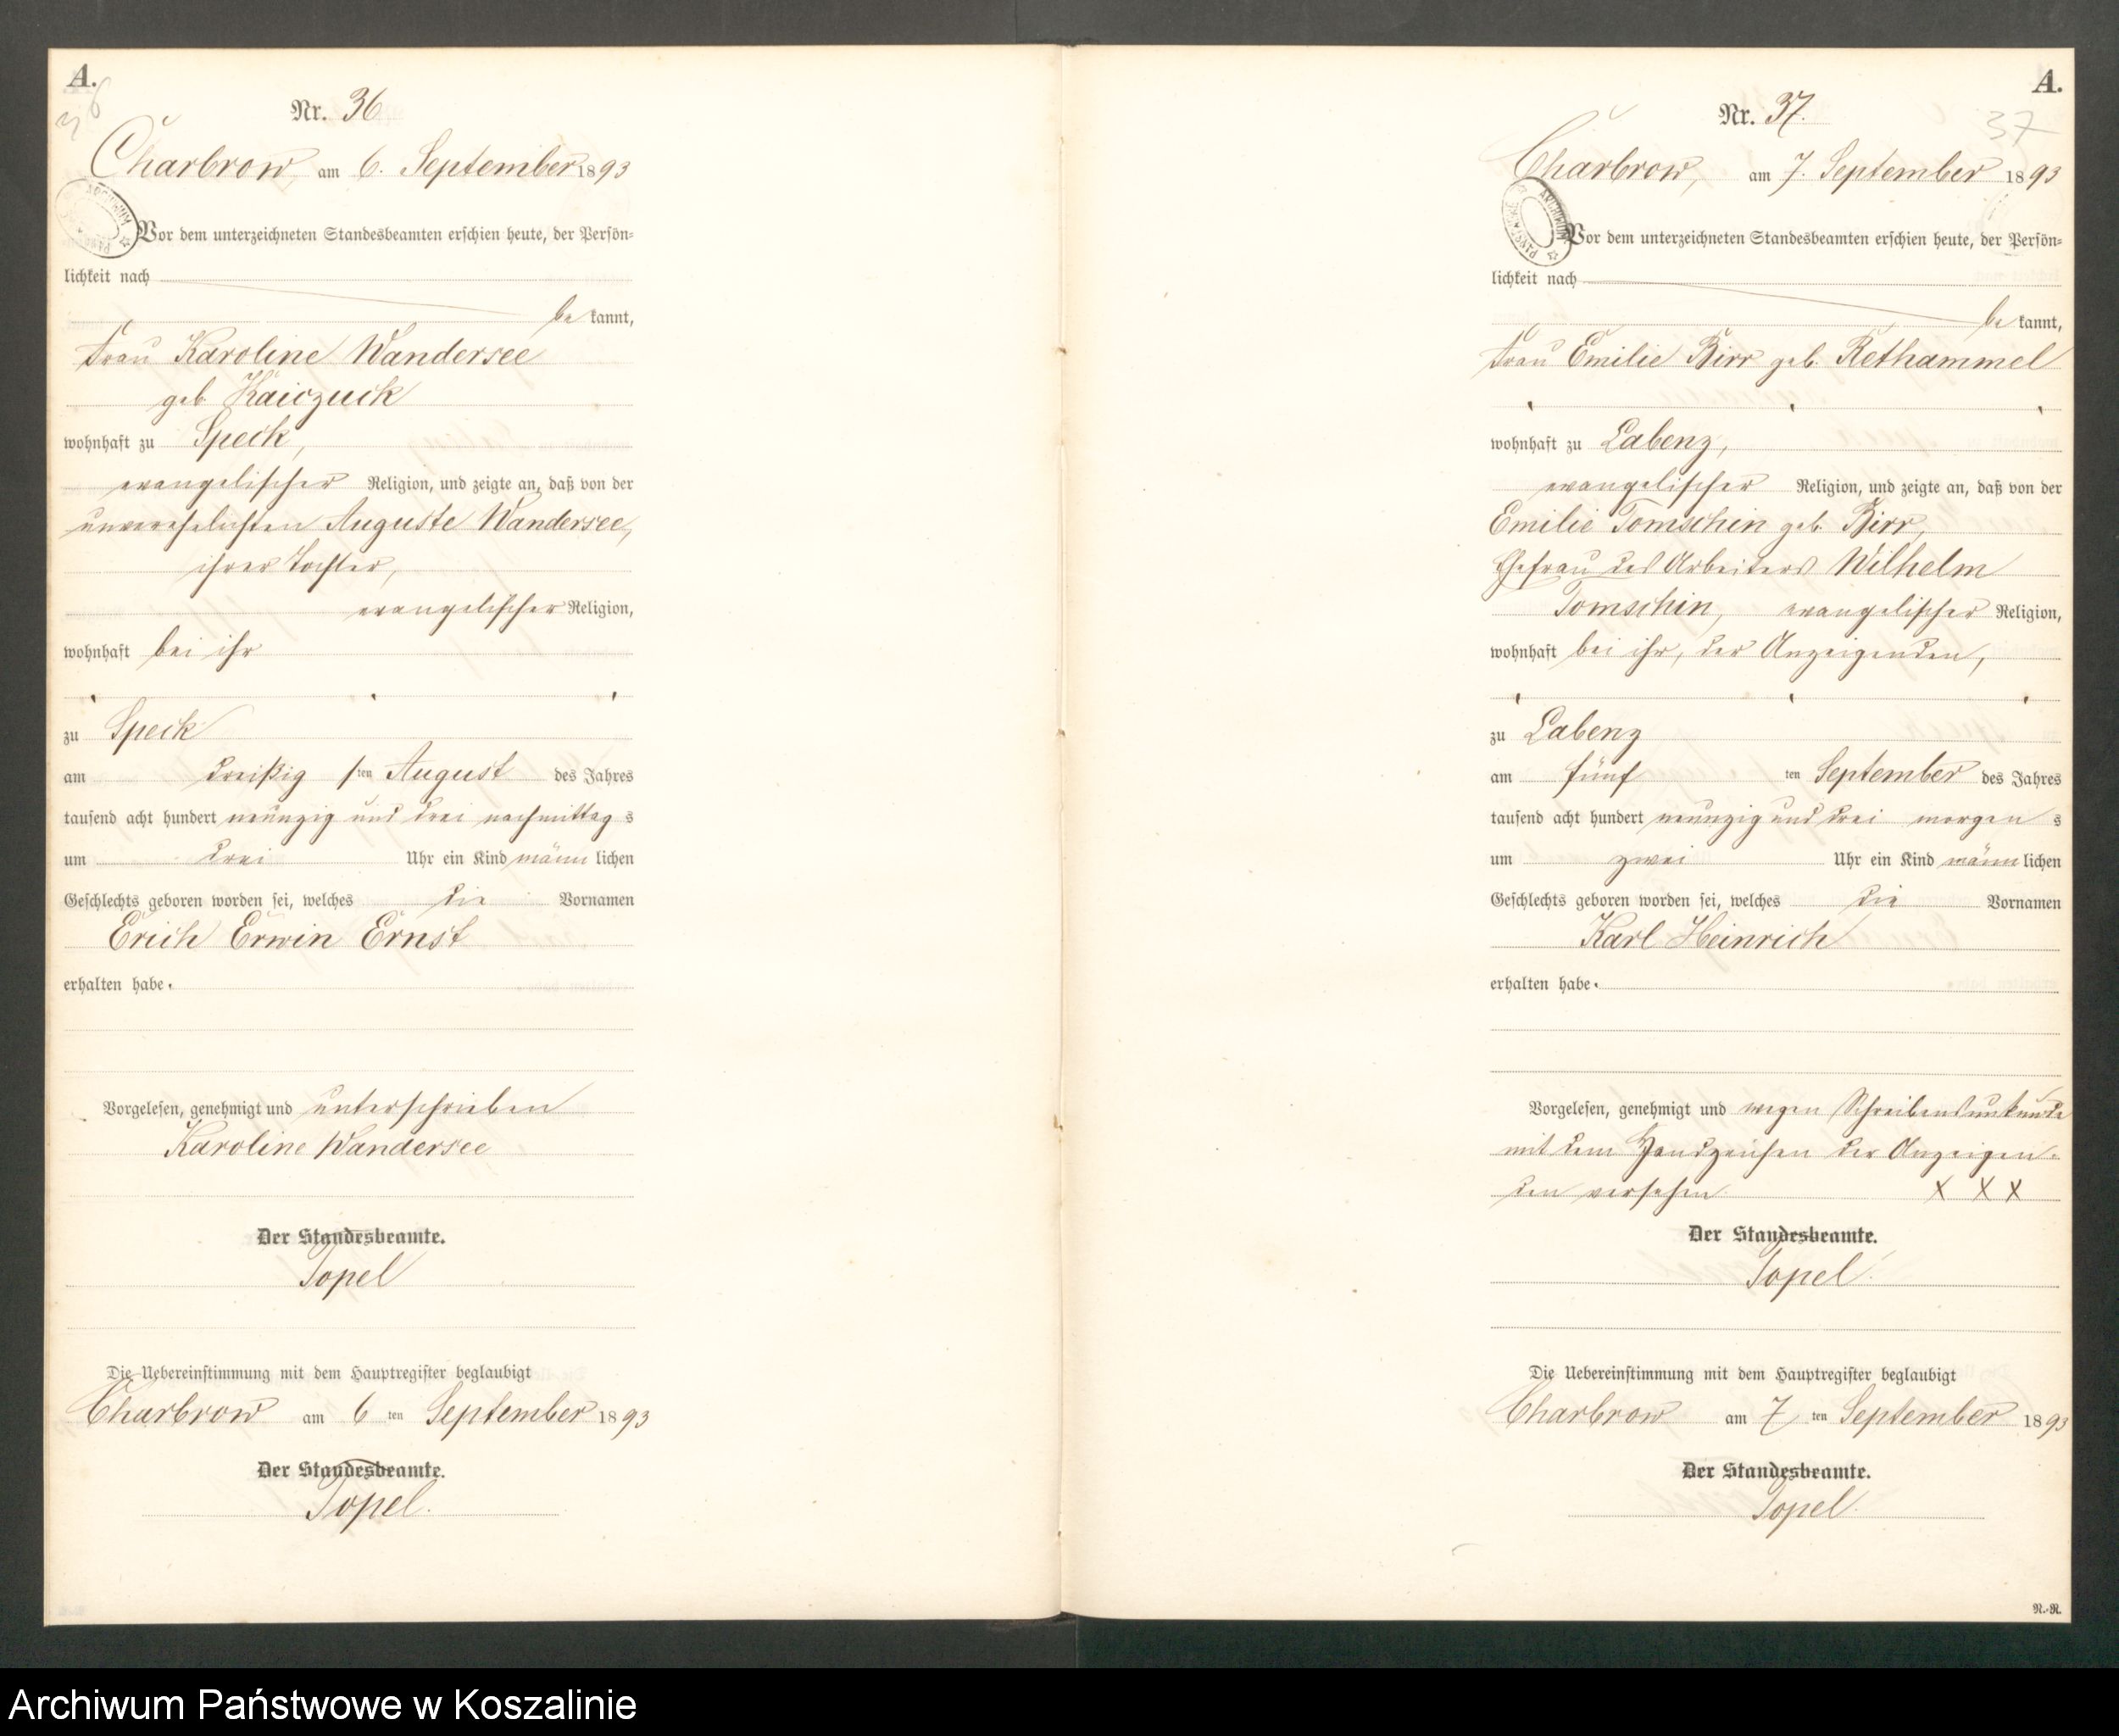 A.
36
Nr. 36
Charbrow, am 6. September 1893
Vor dem unterzeichneten Standesbeamten erschien heute, der Persön=
lichkeit nach
be kannt,
Frau Karoline Wandersee
geb.
wohnhaft zu Speck,
evangelischer Religion, und zeigte an, daß von der
unverehelichten Auguste Wandersee,
ihrer Tochter,
evangelischer Religion,
wohnhaft bei ihr
zu Speck
am dreißig sten August des Jahres
tausend acht hundert neunzig und drei nachmittag s
um drei Uhr ein Kind männ lichen
Geschlechts geboren worden sei, welches die Vornamen
Erich Erwin Ernst
erhalten habe.
Vorgelesen, genehmigt und unterschrieben
Karoline Wandersee
Der Standesbeamte.
Topel
Die Uebereinstimmung mit dem Hauptregister beglaubigt
Charbrow am 6 ten September 1893
Der Standesbeamte.
Topel.
A.
37
Nr. 37.
Charbrow, am 7. September 1893
ARCHIWUM PAŃSTWOWE
Vor dem unterzeichneten Standesbeamten erschien heute, der Persön=
lichkeit nach
be kannt,
Frau Emilie Birr geb. Rethammel
wohnhaft zu Labenz,
evangelischer Religion, und zeigte an, daß von der
Emilie Tomschin geb. Birr,
Ehefrau des Arbeiters Wilhelm
Tomschin, evangelischer Religion,
wohnhaft bei ihr, der Anzeigenden,
zu Labenz
am fünf ten September des Jahres
tausend acht hundert neunzig und drei morgen s
um zwei Uhr ein Kind männ lichen
Geschlechts geboren worden sei, welches die Vornamen
Karl Heinrich
erhalten habe.
Vorgelesen, genehmigt und wegen Schreibensunkunde
mit dem Handzeichen der Anzeigen=
den versehen. X X X
Der Standesbeamte.
Topel.
Die Uebereinstimmung mit dem Hauptregister beglaubigt
Charbrow am 7 ten September 1893
Der Standesbeamte.
Topel.
N.-R.
Archiwum Państwowe w Koszalinie